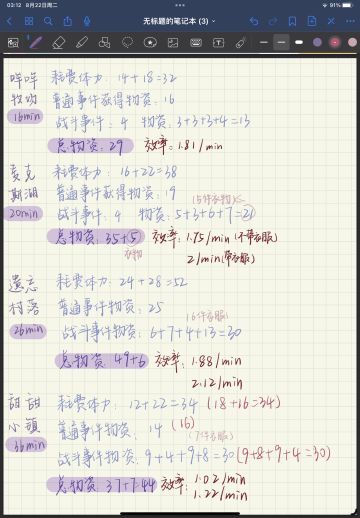 03:12 8月22日周二
91%
无标题的笔记本 (3)
哞哞牧场 16min
耗费体力：14+18=32
普通事件获得物资：16
战斗事件：4 物资：3+3+3+4=13
总物资：29 效率：1.81/min
麦克斯湖 20min
耗费体力：16+22=38
普通事件获得物资：19
(5件衣物)
战斗事件：4 物资：5+3+6+7=21
总物资：35+5 效率：1.75/min (不带衣服)
衣物
2/min (带衣服)
遗忘村落 26min
耗费体力：24+28=52
普通事件物资：25
(6件衣服)
战斗事件物资：6+7+4+13=30
总物资：49+6 效率：1.88/min
2.12/min
甜甜小镇 36min
耗费体力：12+22=34 (18+16=34)
普通事件物资：14 (16)
(7件衣服)
战斗事件物资：9+4+9+8=30 (9+8+9+4=30)
总物资：37+7=44 效率：1.02/min
1.22/min